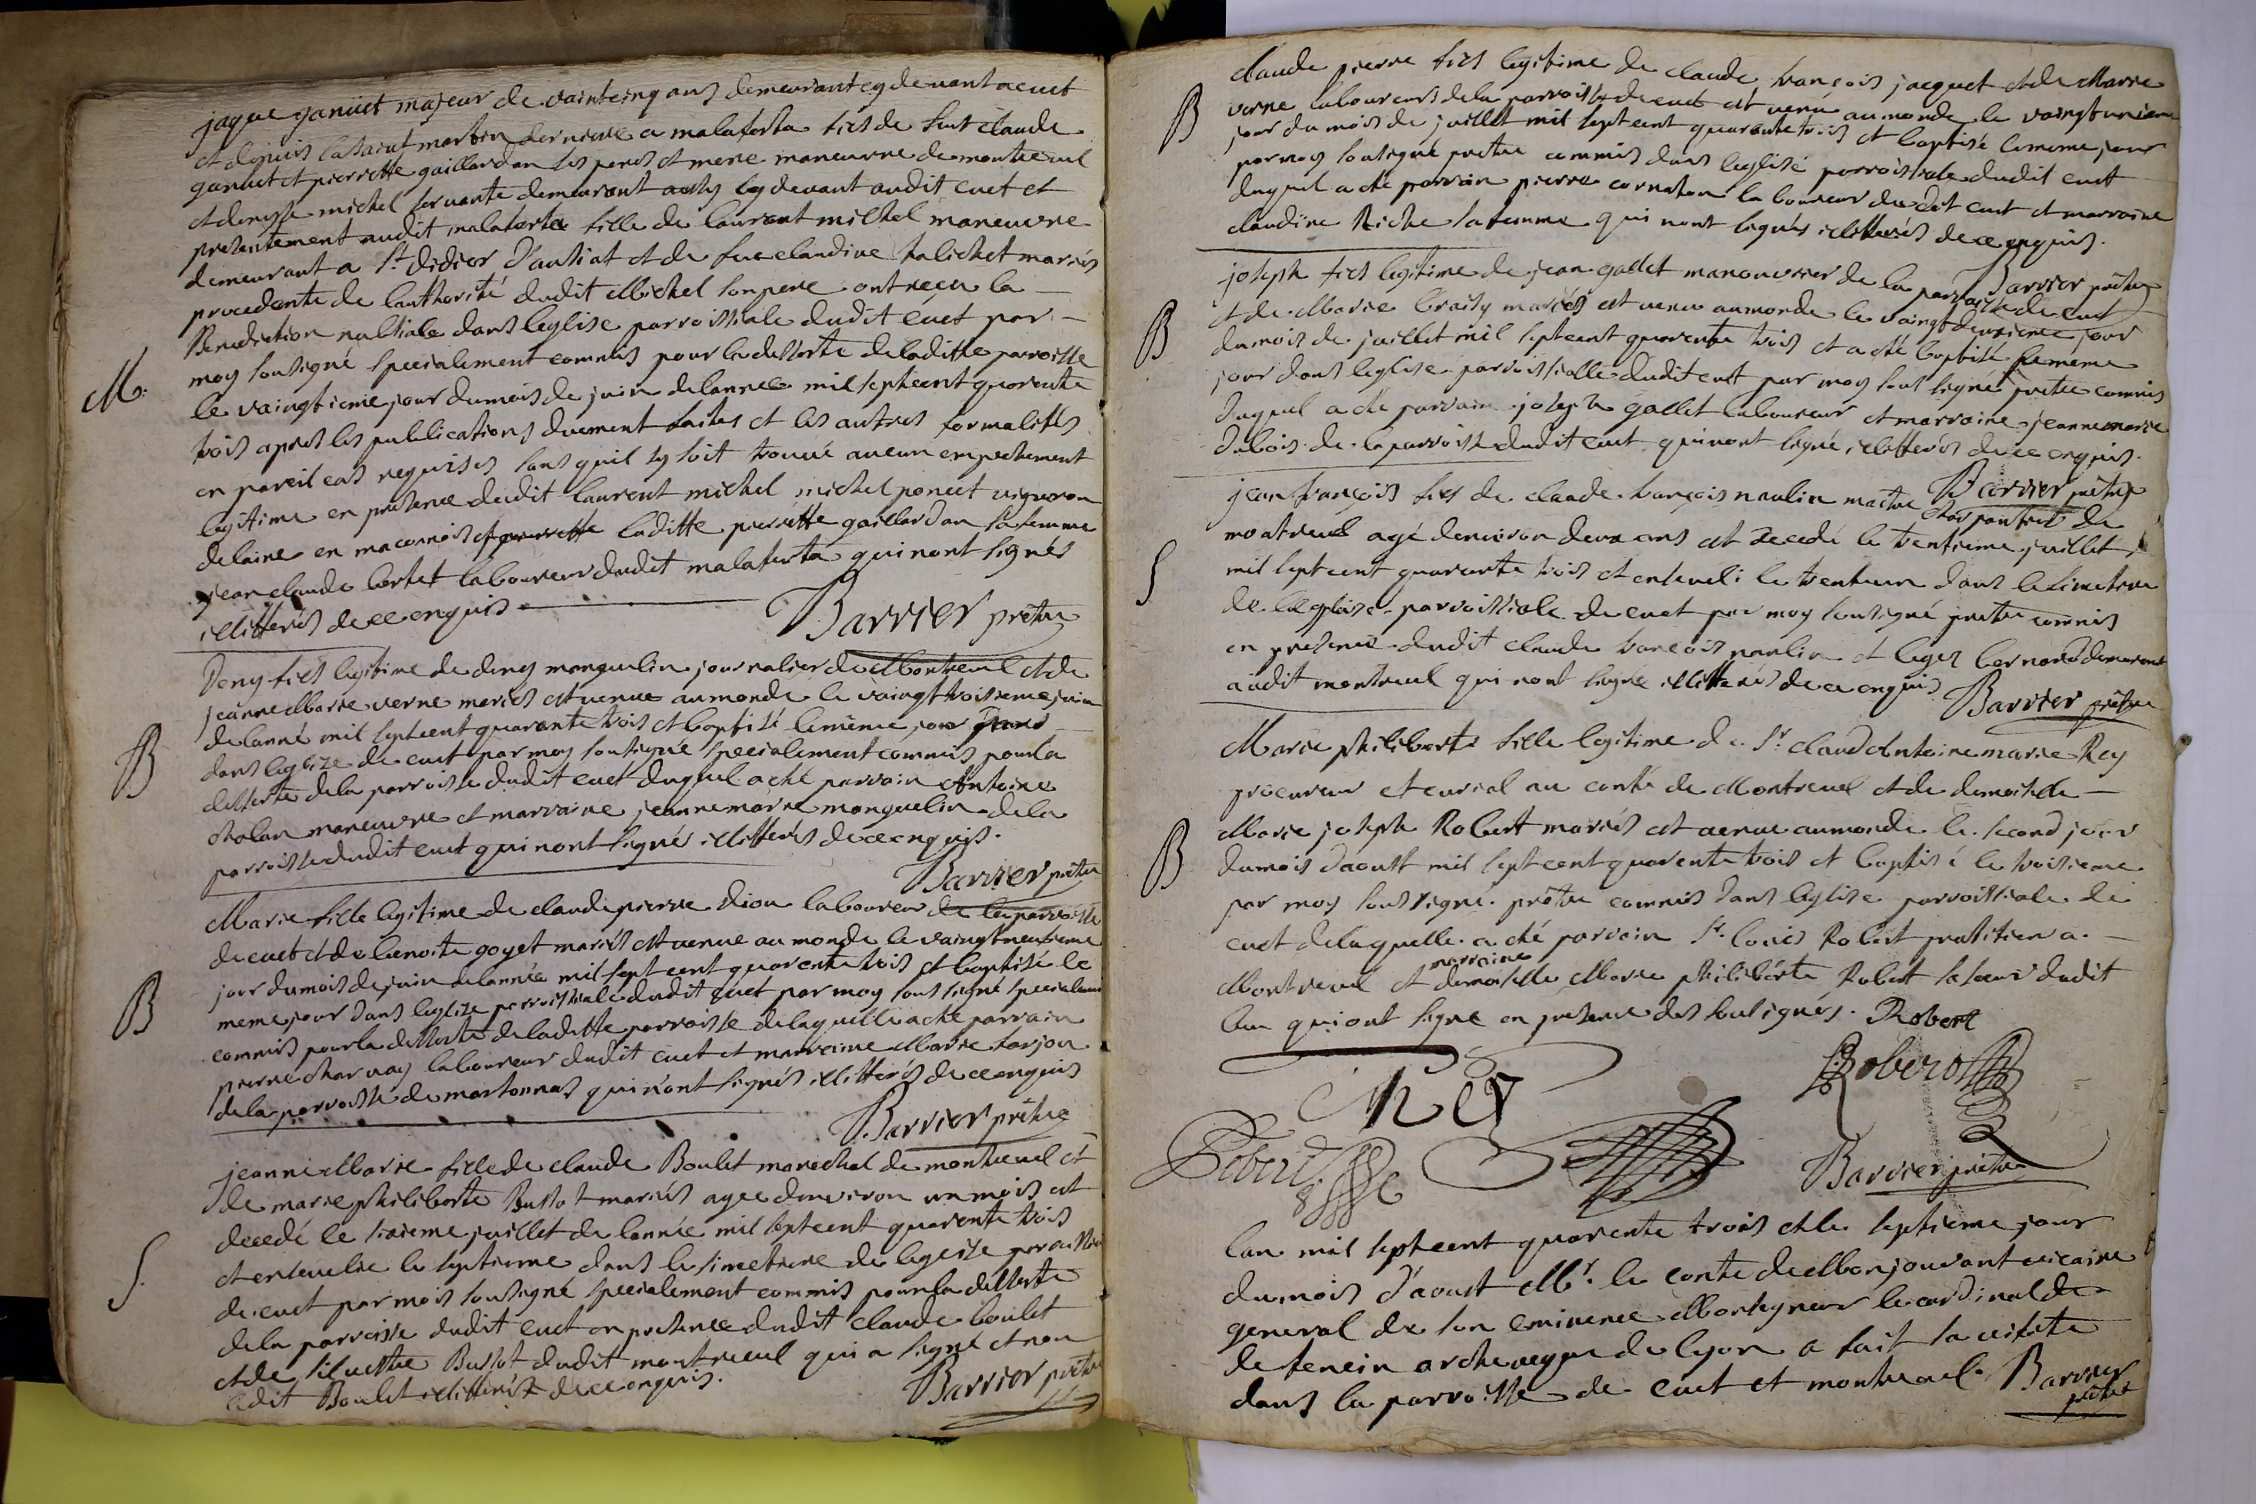 jaque ganuet majeur de vaintcinq ans demeurant cy devant a cuet
et depuis la saint martin derniere a malaforta fils de feut claude
ganuet et pierrette gaillardon ses peres et mere maneuvre de montreuil
et denyse michel servante demeurant aussy cy devant audit cuet et
presentement audit malaforta fille de laurent michel maneuvre
demeurant a St didier d'aussiat et de fue claudine maries
procedante de lauthorité dudit Michel son pere ont reçu la
Benediction nubtiale dans leglise parroissiale dudit cuet par
M.
moy sousigné specialement commis pour la desserte de laditte paroisse
le vaingtieme jour du mois de juin de lannee mil septcent quarente
trois apres les publications duement faites et les autres formalittes
en pareil cas requises sans quil sy soit trouué aucun empechement
legitime en presence dudit laurent michel michel poncet uigneron
delaine en maconnois et laditte pierrette gaillardon sa femme
jean claude bertet laboureur dudit malaforta qui n'ont signés
illitterés de ce enquis
Barrier prêtre
Deny fils legitime de denys manguelin journalier de Montreuil et de
jeanne Marie verne mariés est venue au monde le vaingt troisieme juin
B
de lanné mil septcent quarante trois et baptisé le même jour
dans leglize de cuet par moy sousigné specialement commis pour la
desserte de la parroisse dudit cuet duquel a eté parrain Antoine
Rolan maneuvre et marraine jeanne marie manguelin de la
parroisse dudit cuet qui n'ont signés illitterés de ce enquis.
Barrier prêtre
Marie fille legitime de claude pierre dion laboureur de la parroisse
de cuet et de benoite goyet mariés est venue au monde le vaingt neufieme
B
jour du mois de juin de lannée mil sept cent quarente trois et baptisé le
meme jour dans leglize parroissiale dudit cuet par moy sous signé specialement
commis pour la desserte de laditte parroisse de laquelle a eté parrain
pierre charnay laboureur dudit cuet et marraine Marie farjon
de la parroisse de marsonnas qui n'ont signés illitterés de ce enquis
Barrier prêtre
jeanne Marie fille de claude Boulet marechal de montreuil et
de marie philiberte Bussot mariés agee denviron un mois est
decedé le sixieme juillet de lannée mil septcent quarente trois
S.
et enseuelie le septieme dans le simetiere de leglise paroissiale
de cuet par mois sousigné specialement commis pour la desserte
de la parroisse dudit cuet en presence dudit claude boulet
et de siluestre Bussot dudit montreuil qui a signé et non
ledit Boulet illitteré de ce enquis.
Barrier prêtre
claude pierre fils legitime de claude françois jacquet et de Marie
B
verne laboureurs de la parroisse de cuet est venu au monde le vaingt unieme
jour du mois de juillet mil septcent quarente trois et baptisé le meme jour
par moy sousigné prêtre commis dans leglisé parroissiale dudit cuet
duquel a eté parrain pierre cornaton laboureur dudit cuet et marraine
claudine Riche sa femme qui n'ont signés illitterés de ce enquis.
Barrier prêtre
joseph fils legitime de jean gallet manouvrier de la parroisse de cuet
B
et de Marie braisy mariés est venu au monde le vaingt deuxieme jour
du mois de juillet mil septcent quarente trois et a eté baptisé le meme
jour dans leglise parroissialle dudit cuet par moy sous signé prêtre commis
duquel a eté parrain joseph gallet laboureur et marraine jeanne marie
dubois de la parroisse dudit cuet qui n'ont signé, illitterés de ce enquis.
Barrier prêtre
jean françois fils de claude françois naulin maitre charpantier de
montreuil agé denviron deux ans est decedé le trentieme juillet
S
mil septcent quarente trois et enseueli le trenteun dans le simetiere
de leglaise parroissiale de cuet par moy sousigné prêtre commis
en presence dudit claude françois naulin et leger bernard demeurant
audit montreuil qui n'ont signé illitterés de ce enquis
Barrier prêtre
Marie philiberte fille legitime de Sr. claud Antoine marie Rey
procureur et curial au conté de Montreuel et de demoiselle
B
Marie joseph Robert mariés est venue au monde le second jour
du mois d'aoust mil septcent quarente trois et baptisé le troisieme
par moy sousigné prêtre commis dans leglise parroissiale de
cuet de laquelle a eté parrain Sr. louis Robert pratitien a
Montreuel et marraine demoiselle Marie philiberte Robert sa soeur dudit
lieu qui ont signé en presence des sousignés. Robert
Rey
Robert
Robert
Barrier prêtre
lan mil septcent quarente trois et le septieme jour
du mois d'aoust Mr. le conte de Monjouvant vicaire
general de son eminence Monsegneur le cardinal de
de tencin archeveque de lyon a fait sa visite
dans la parroisse de cuet et montreuel. Barrier
prêtre